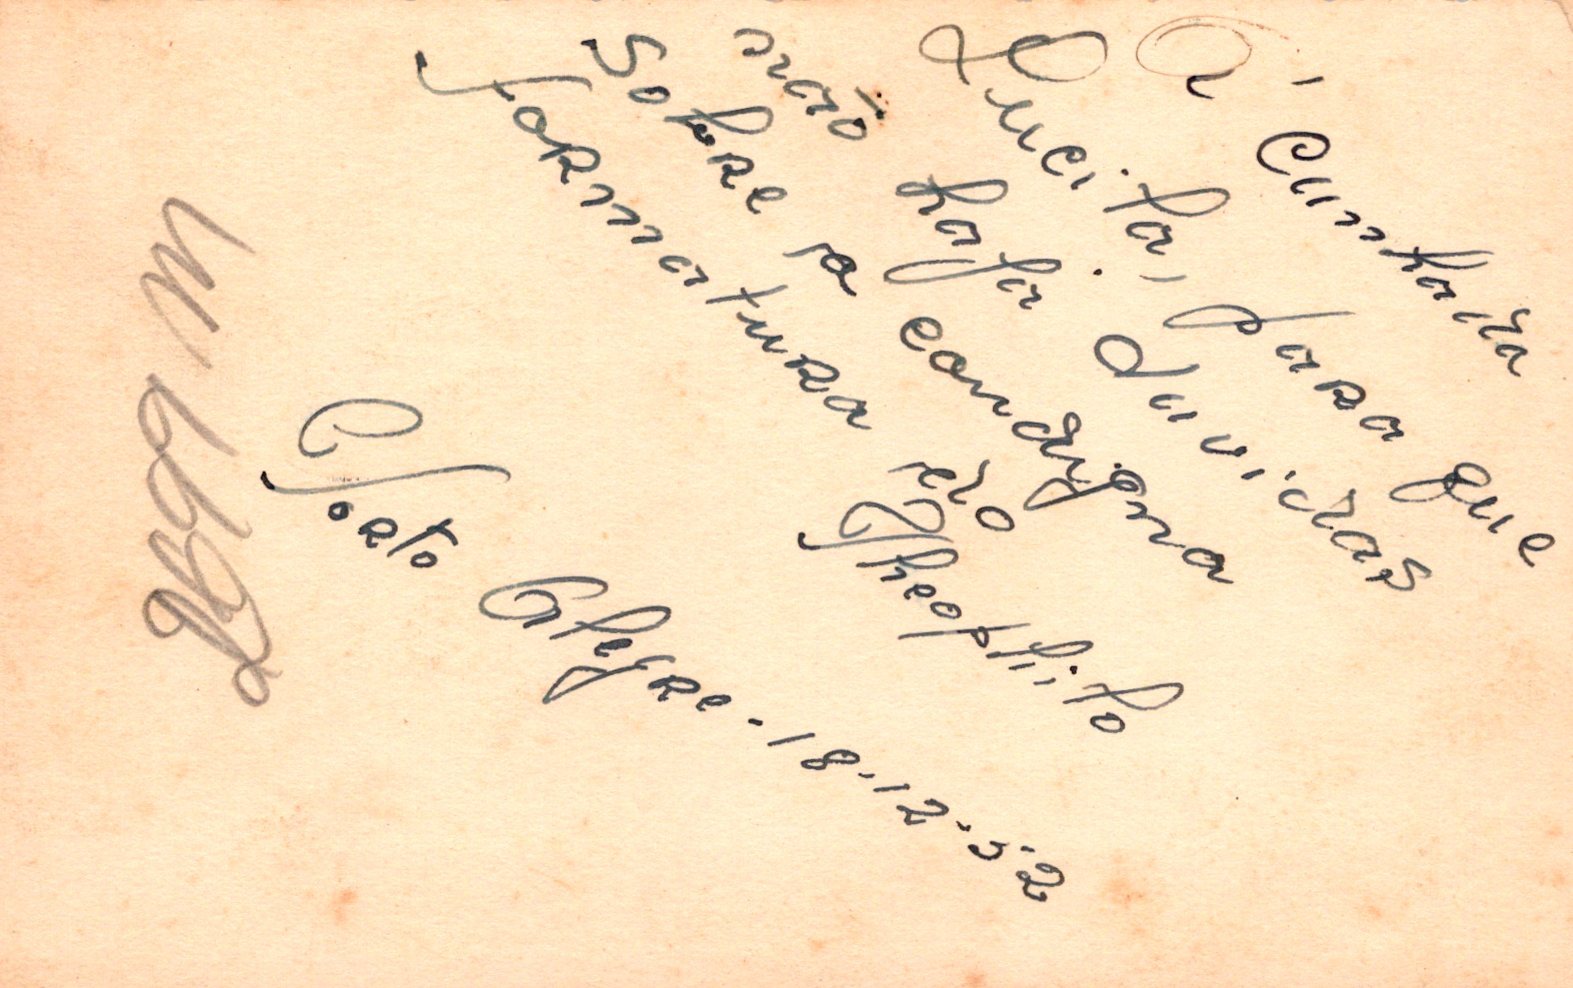 À Cunhada
Lucila, para que
não haja dúvidas
sobre a condigna
formatura do
Theophilo
Porto Alegre - 18-12-52